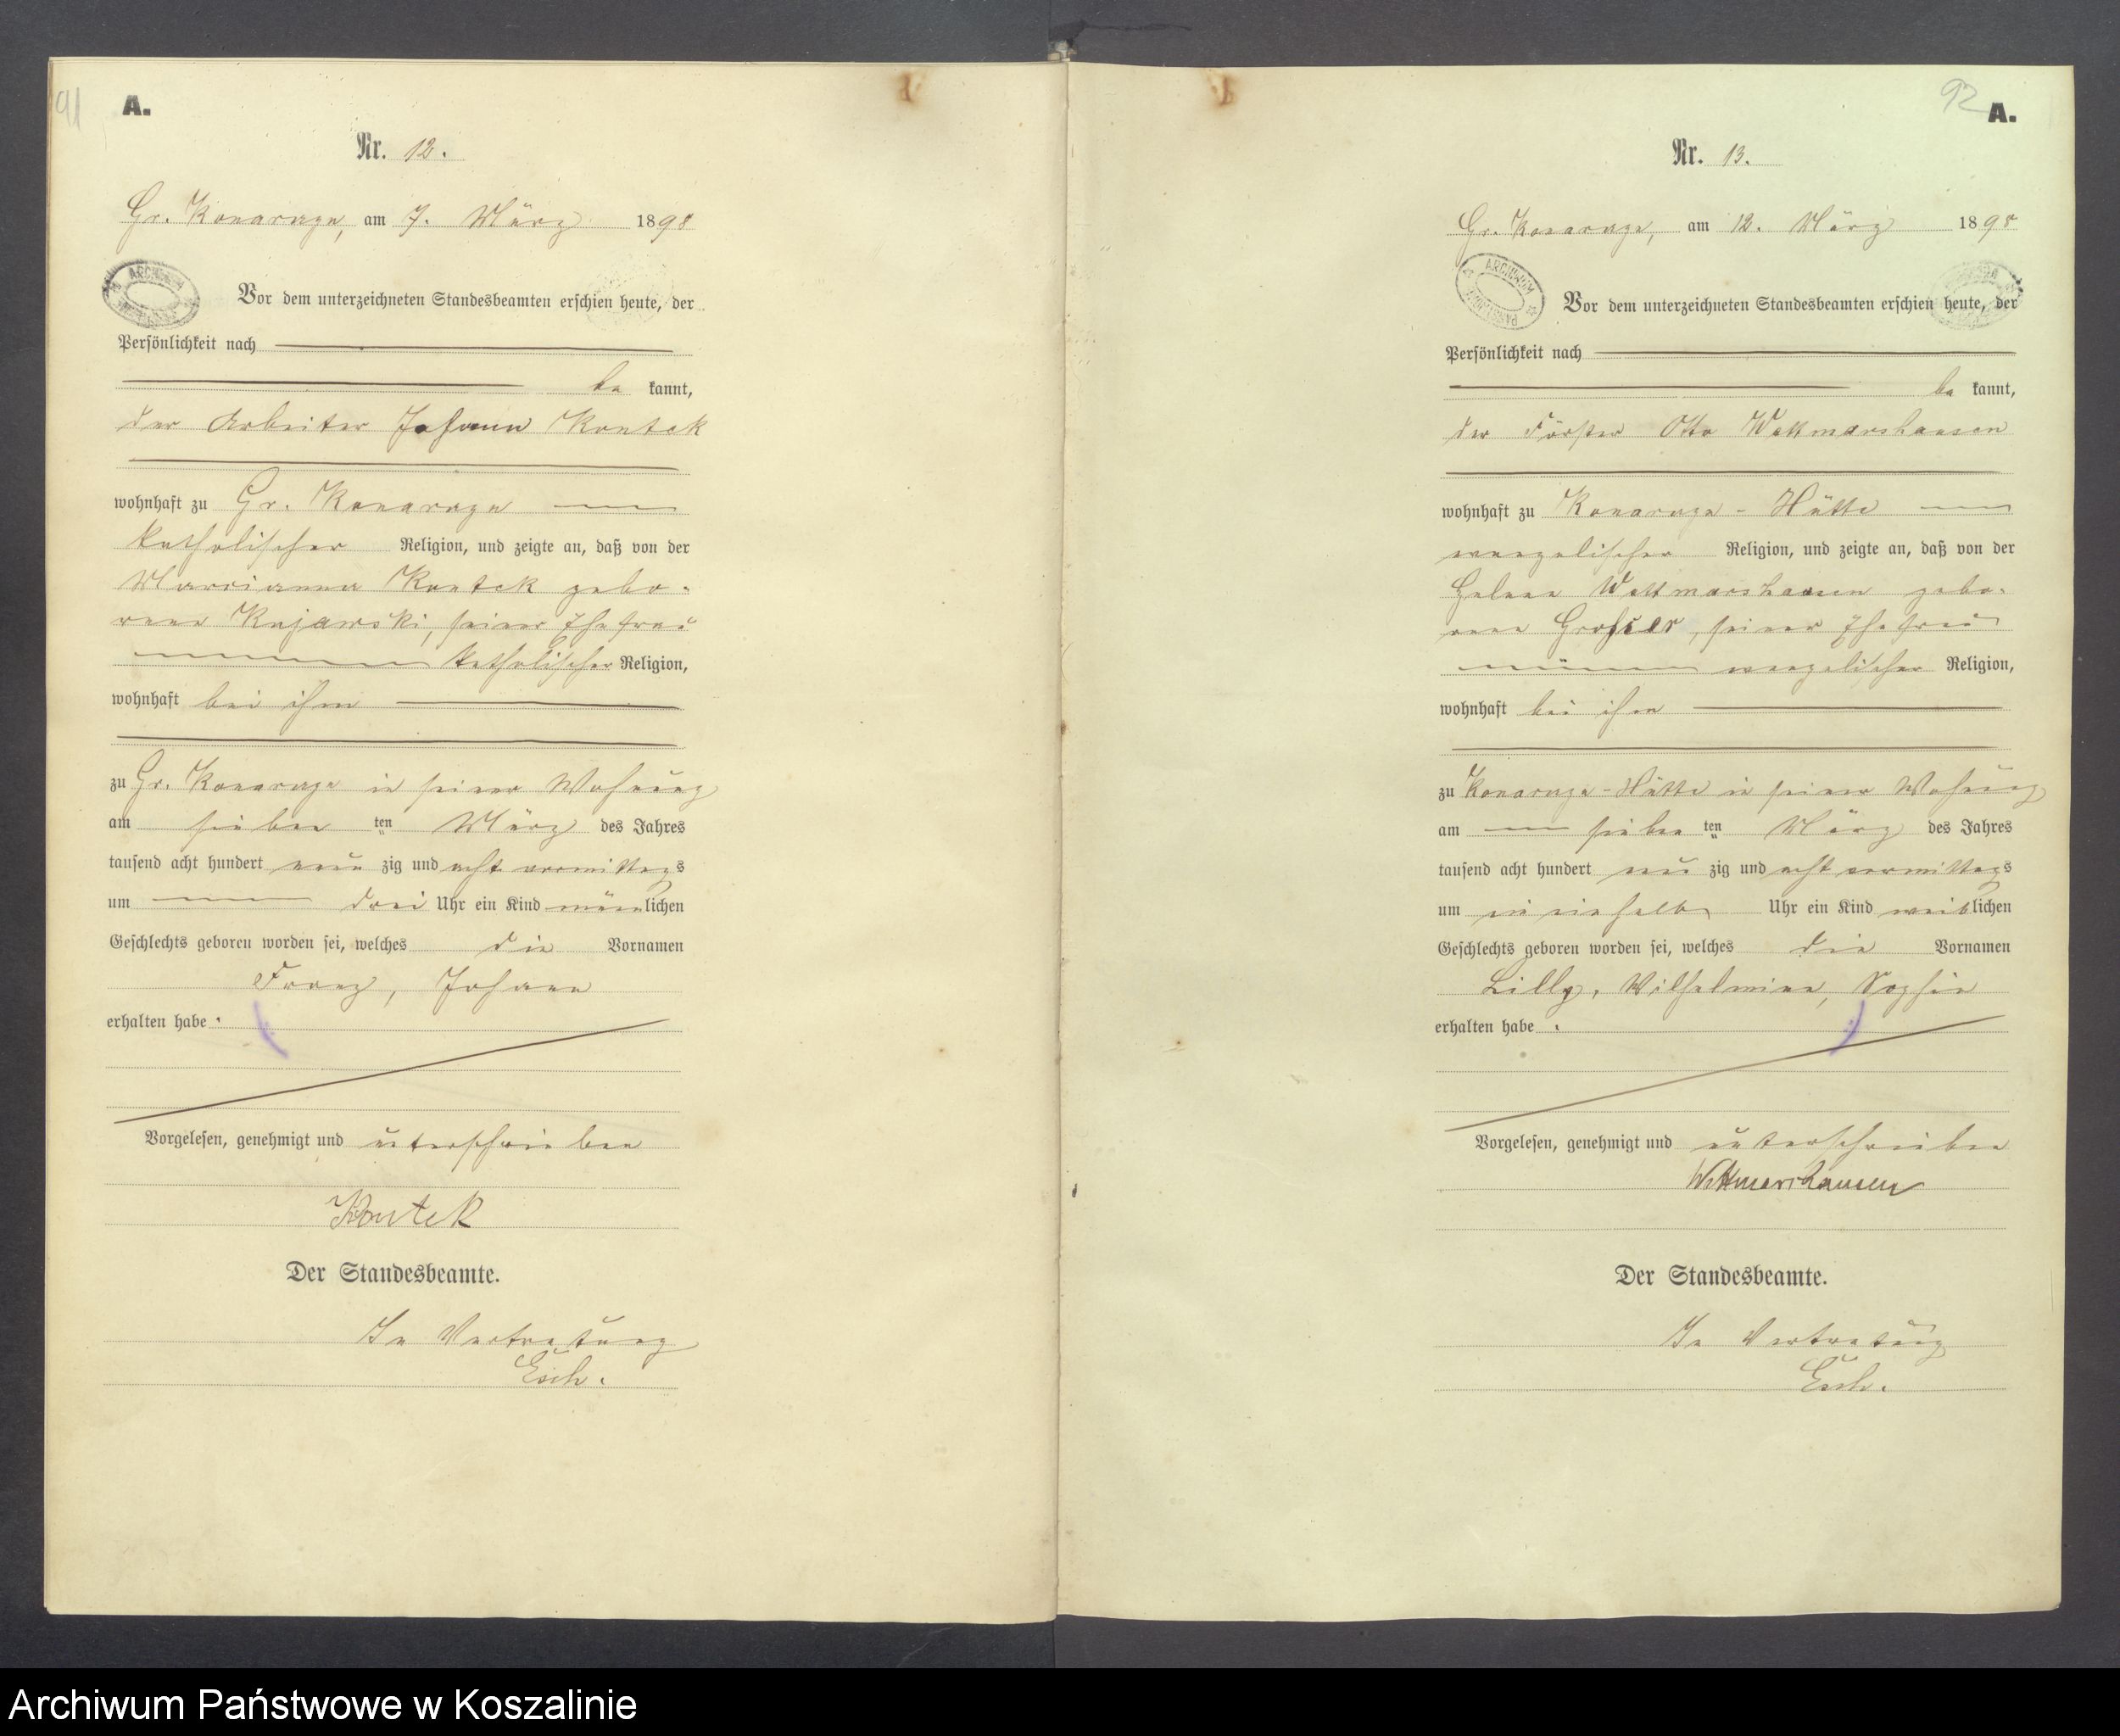 91
A.
Nr. 12.
Gr. Konarzyn, am 7. März 1898
Vor dem unterzeichneten Standesbeamten erschien heute, der
Persönlichkeit nach
be kannt,
der Arbeiter Johann Kontek
wohnhaft zu Gr. Konarzyn
katholischer Religion, und zeigte an, daß von der
Marianna Kontek gebo-
rene Kujawski, seiner Ehefrau
katholischer Religion,
wohnhaft bei ihm
zu Gr. Konarzyn in seiner Wohnung
am sieben ten März des Jahres
tausend acht hundert neun zig und acht vormittags
um drei Uhr ein Kind männlichen
Geschlechts geboren worden sei, welches die Vornamen
Franz, Johann
erhalten habe.
Vorgelesen, genehmigt und unterschrieben
Kontek
Der Standesbeamte.
In Vertretung
Esch.
92
A.
Nr. 13.
Gr. Konarzyn, am 12. März 1898
ARCHIWUM
Vor dem unterzeichneten Standesbeamten erschien heute, der
Persönlichkeit nach
be kannt,
der Förster Otto Wittmarshausen
wohnhaft zu Konarzyn-Hütte
evangelischer Religion, und zeigte an, daß von der
Helene Wittmarshausen gebo-
rene , seiner Ehefrau
evangelischer Religion,
wohnhaft bei ihm
zu Konarzyn-Hütte in seiner Wohnung
am sieben ten März des Jahres
tausend acht hundert neun zig und acht vormittags
um ein einhalb Uhr ein Kind weiblichen
Geschlechts geboren worden sei, welches die Vornamen
Lilly, Wilhelmine, Sophie
erhalten habe.
Vorgelesen, genehmigt und unterschrieben
Wittmarshausen
Der Standesbeamte.
In Vertretung
Esch.
Archiwum Państwowe w Koszalinie